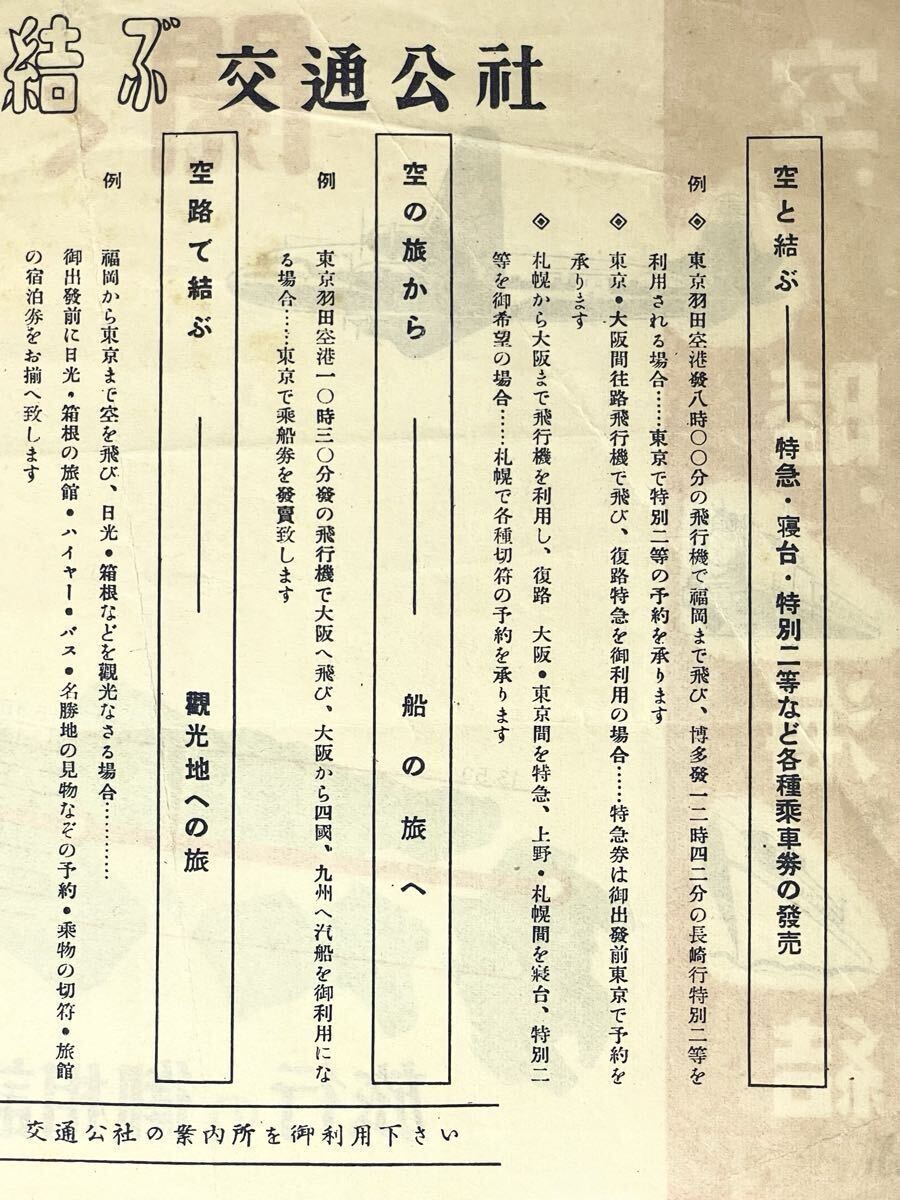 結ぶ 交通公社
空と結ぶ――特急・寝台・特別二等など各種乗車券の發売
例 ◈ 東京羽田空港發八時〇〇分の飛行機で福岡まで飛び、博多發一二時四二分の長崎行特別二等を
利用される場合……東京で特別二等の予約を承ります
◈ 東京・大阪間往路飛行機で飛び、復路特急を御利用の場合……特急券は御出發前東京で予約を
承ります
◈ 札幌から大阪まで飛行機を利用し、復路 大阪・東京間を特急、上野・札幌間を寝台、特別二
等を御希望の場合……札幌で各種切符の予約を承ります
空の旅から――船の旅へ
例 東京羽田空港一〇時三〇分發の飛行機で大阪へ飛び、大阪から四國、九州へ汽船を御利用にな
る場合……東京で乗船券を發賣致します
空路で結ぶ――觀光地への旅
例 福岡から東京まで空を飛び、日光・箱根などを觀光なさる場合…………
御出發前に日光・箱根の旅館・ハイヤー・バス・名勝地の見物なぞの予約・乗物の切符・旅館
の宿泊券をお揃へ致します
交通公社の案內所を御利用下さい